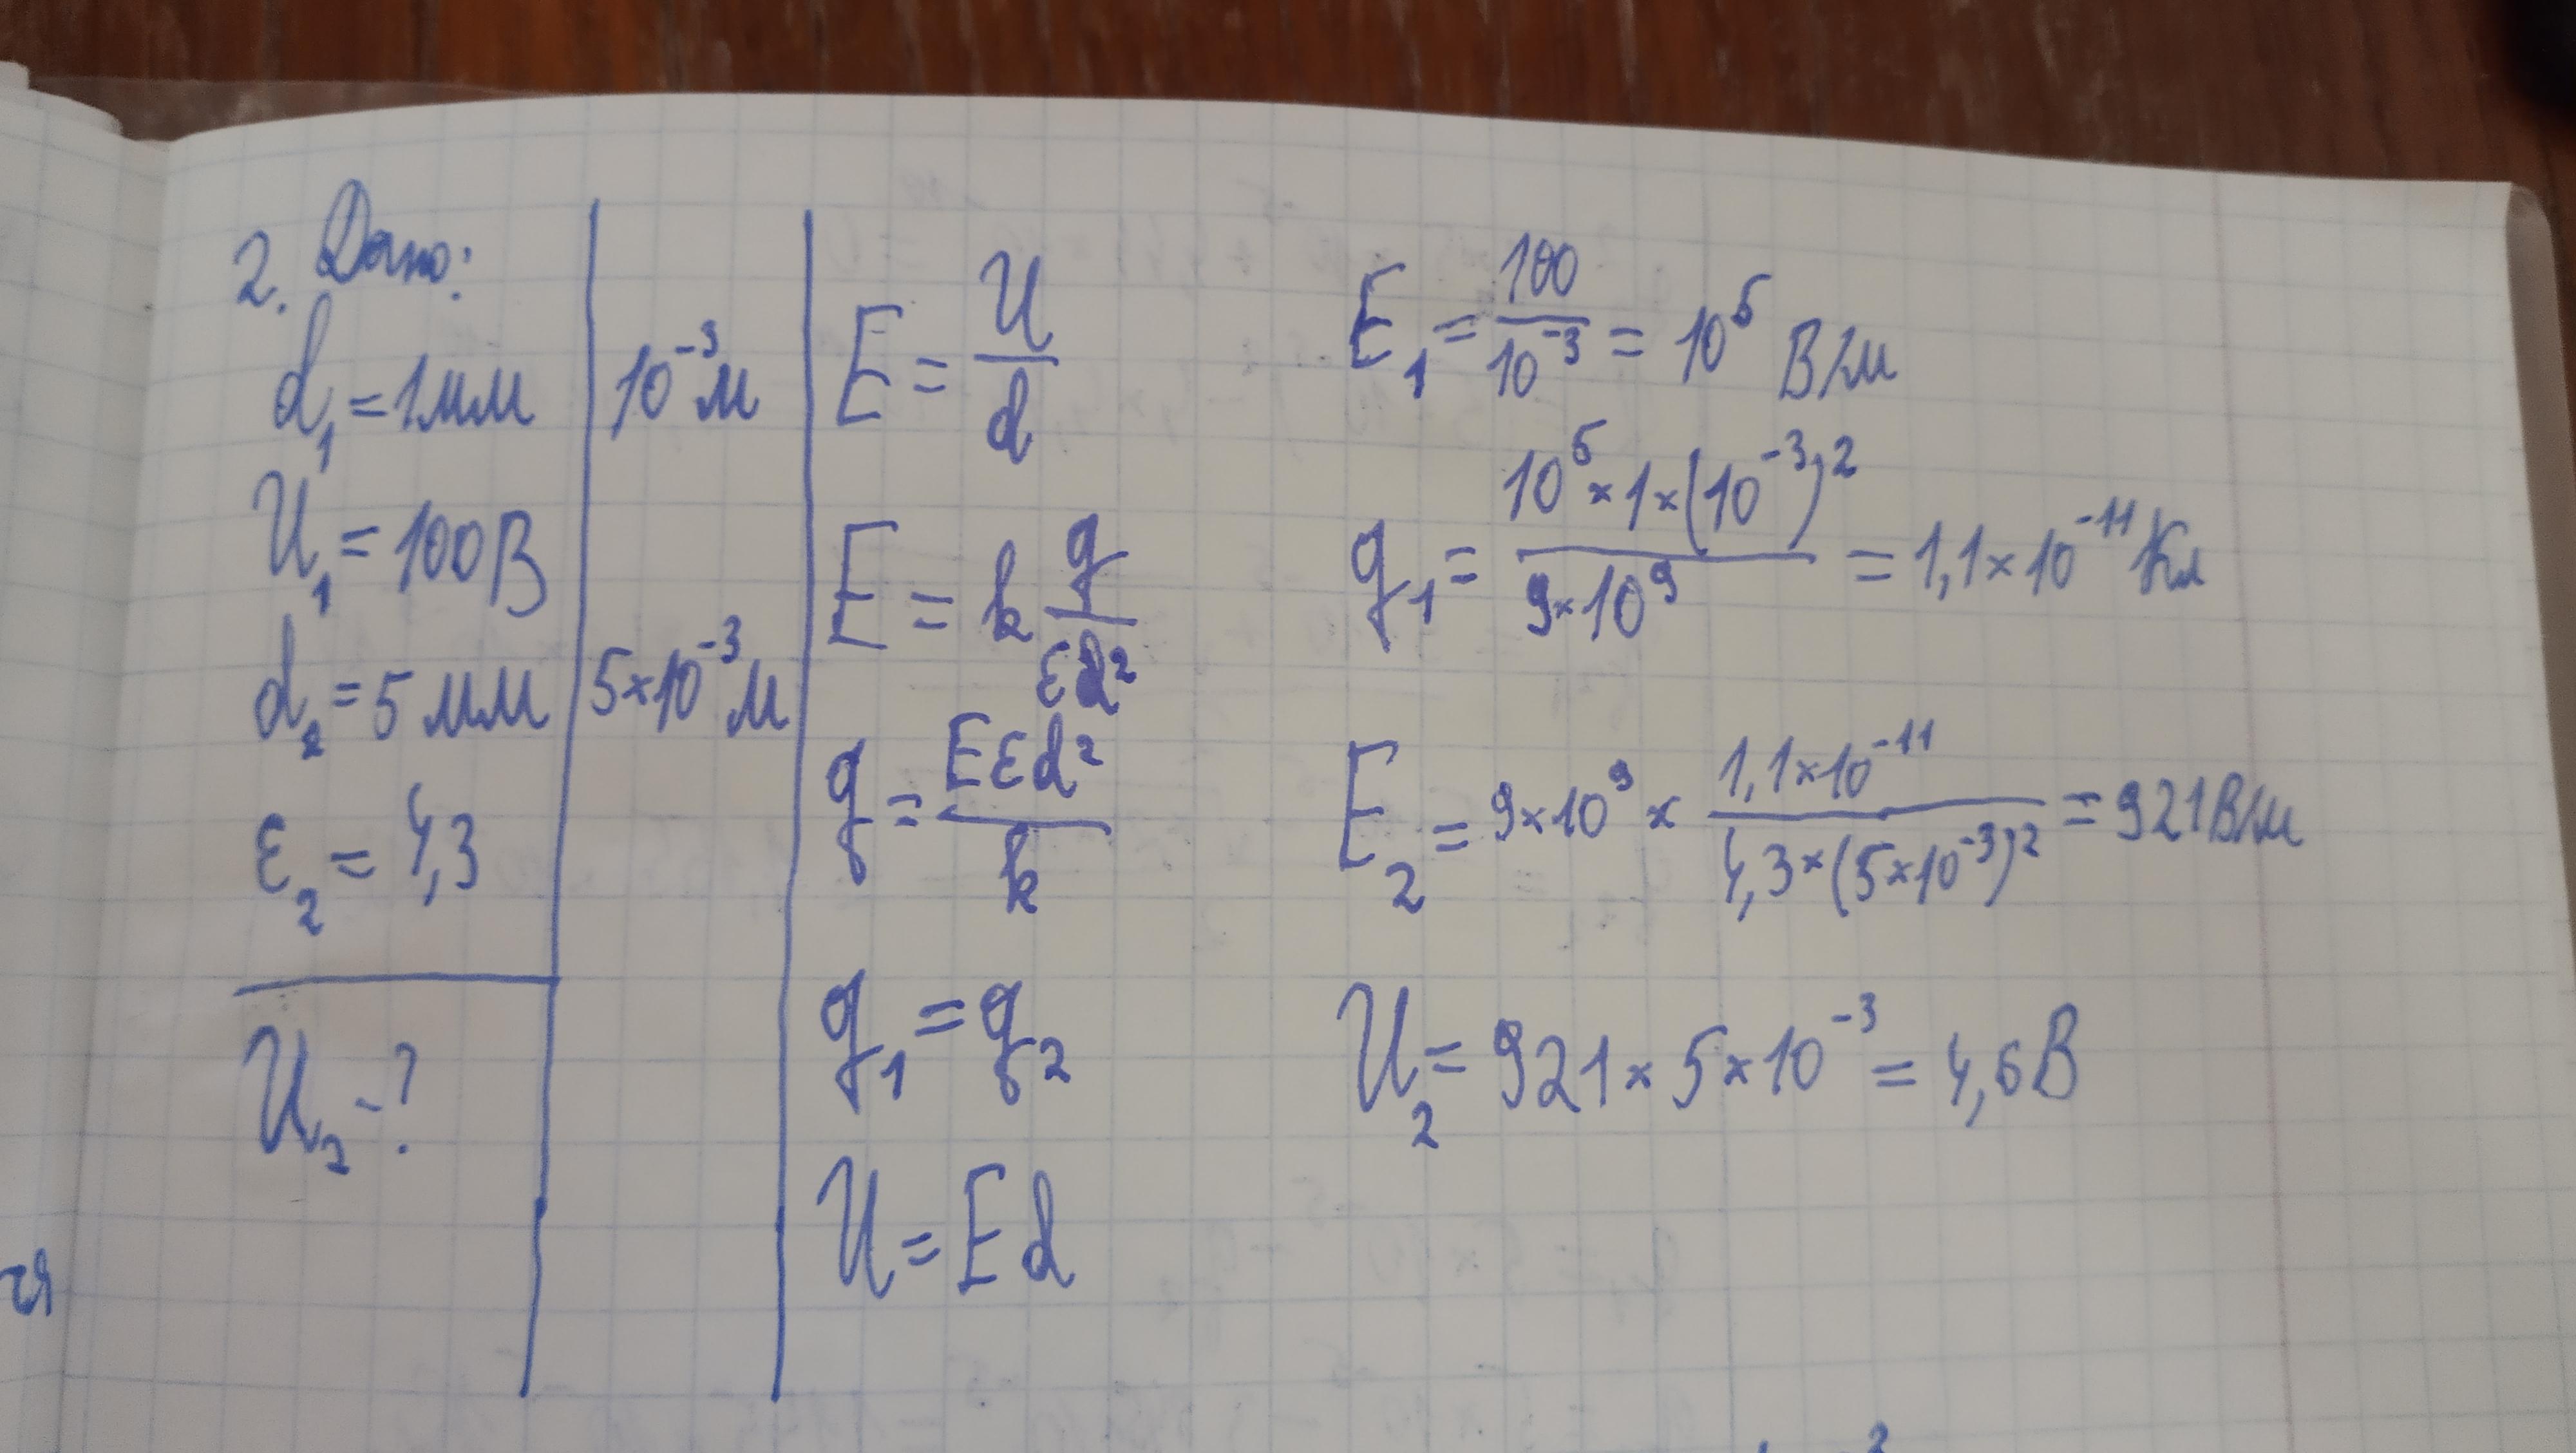 2. Дано:
d₁ = 1 мм
U₁ = 100 В
d₂ = 5 мм
ε₂ = 4,3
U₂ - ?
10⁻³ м
5×10⁻³ м
E = U/d
E = k q/εd²
q = Eεd²/k
q₁ = q₂
U = Ed
E₁ = 100/10⁻³ = 10⁵ В/м
q₁ = 10⁵×1×(10⁻³)²/9×10⁹ = 1,1×10⁻¹¹ Кл
E₂ = 9×10⁹ × 1,1×10⁻¹¹/4,3×(5×10⁻³)² = 921 В/м
U₂ = 921×5×10⁻³ = 4,6 В